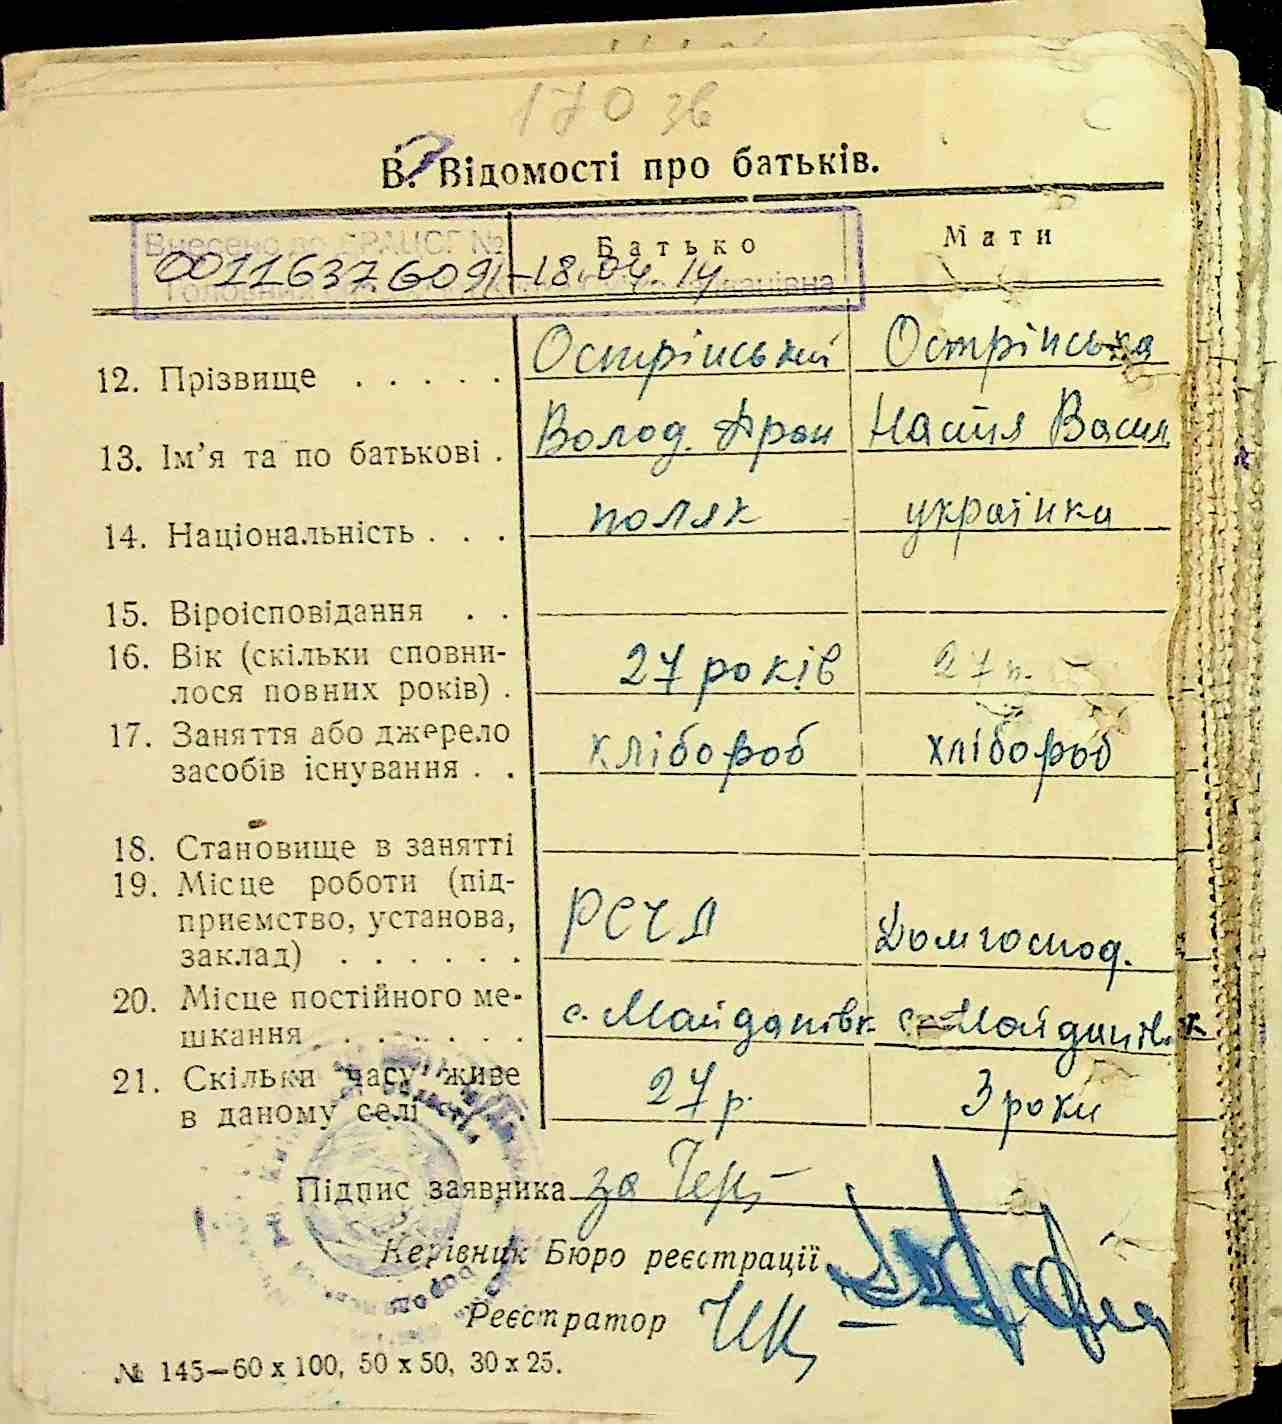 170 зв
В. Відомості про батьків.
Внесено до ДРАЦСГ №
Батько Мати
00116376091-18.04.14
12. Прізвище . . . . . Острінський Острінська
13. Ім’я та по батькові . Волод. Фран Настя Васил
14. Національність . . . поляк українка
15. Віроісповідання . .
16. Вік (скільки сповни-
лося повних років) . 27 років 27 р.
17. Заняття або джерело
засобів існування . . хлібороб хлібороб
18. Становище в занятті
19. Місце роботи (під-
приємство, установа,
заклад) . . . . . . РСЧА Домгоспод.
20. Місце постійного ме-
шкання . . . . . . . с. Майданівк с. Майданівк
21. Скільки часу живе
в даному селі 27 р. 3 роки
Підпис заявника за
Керівник Бюро реєстрації
Реєстратор
№ 145—60 х 100, 50 х 50, 30 х 25.